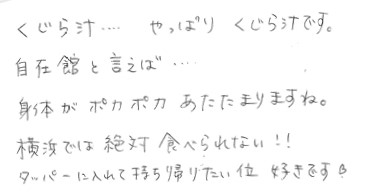 くじら汁‥‥ やっぱり くじら汁です。
自在館と言えば‥‥
身体がポカポカ あたたまりますね。
横浜では絶対食べられない!!
タッパーに入れて持ち帰りたい位 好きです